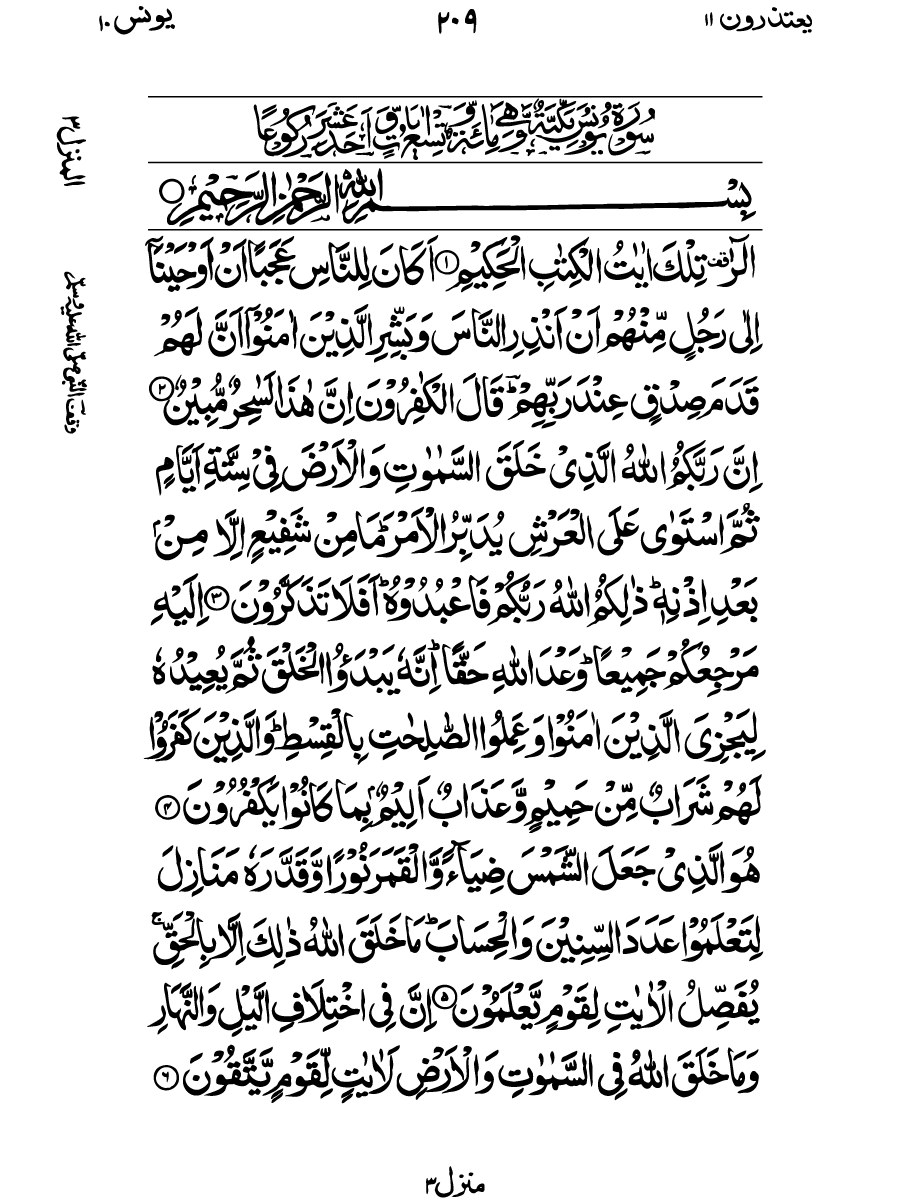 یعتذرون ۱۱
۲۰۹
یونس ۱۰
سُوْرَةُ يُوْنُسَ مَكِّيَّةٌ وَّهِيَ مِائَةٌ وَّتِسْعُ اٰيَاتٍ وَّاَحَدَ عَشَرَ رُكُوْعًا
بِسْمِ اللّٰهِ الرَّحْمٰنِ الرَّحِيْمِ ○
الٓرٰ ۫ تِلْكَ اٰيٰتُ الْكِتٰبِ الْحَكِيْمِ ۝۱ اَكَانَ لِلنَّاسِ عَجَبًا اَنْ اَوْحَيْنَاۤ
اِلٰى رَجُلٍ مِّنْهُمْ اَنْ اَنْذِرِ النَّاسَ وَبَشِّرِ الَّذِيْنَ اٰمَنُوْۤا اَنَّ لَهُمْ
قَدَمَ صِدْقٍ عِنْدَ رَبِّهِمْ ؕ قَالَ الْكٰفِرُوْنَ اِنَّ هٰذَا لَسٰحِرٌ مُّبِيْنٌ ۝۲
اِنَّ رَبَّكُمُ اللّٰهُ الَّذِيْ خَلَقَ السَّمٰوٰتِ وَالْاَرْضَ فِيْ سِتَّةِ اَيَّامٍ
ثُمَّ اسْتَوٰى عَلَى الْعَرْشِ يُدَبِّرُ الْاَمْرَ ؕ مَا مِنْ شَفِيْعٍ اِلَّا مِنْۢ
بَعْدِ اِذْنِهٖ ؕ ذٰلِكُمُ اللّٰهُ رَبُّكُمْ فَاعْبُدُوْهُ ؕ اَفَلَا تَذَكَّرُوْنَ ۝۳ اِلَيْهِ
مَرْجِعُكُمْ جَمِيْعًا ؕ وَعْدَ اللّٰهِ حَقًّا ؕ اِنَّهٗ يَبْدَؤُا الْخَلْقَ ثُمَّ يُعِيْدُهٗ
لِيَجْزِيَ الَّذِيْنَ اٰمَنُوْا وَعَمِلُوا الصّٰلِحٰتِ بِالْقِسْطِ ؕ وَالَّذِيْنَ كَفَرُوْا
لَهُمْ شَرَابٌ مِّنْ حَمِيْمٍ وَّعَذَابٌ اَلِيْمٌۢ بِمَا كَانُوْا يَكْفُرُوْنَ ۝۴
هُوَ الَّذِيْ جَعَلَ الشَّمْسَ ضِيَآءً وَّالْقَمَرَ نُوْرًا وَّقَدَّرَهٗ مَنَازِلَ
لِتَعْلَمُوْا عَدَدَ السِّنِيْنَ وَالْحِسَابَ ؕ مَا خَلَقَ اللّٰهُ ذٰلِكَ اِلَّا بِالْحَقِّ ۚ
يُفَصِّلُ الْاٰيٰتِ لِقَوْمٍ يَّعْلَمُوْنَ ۝۵ اِنَّ فِي اخْتِلَافِ الَّيْلِ وَالنَّهَارِ
وَمَا خَلَقَ اللّٰهُ فِي السَّمٰوٰتِ وَالْاَرْضِ لَاٰيٰتٍ لِّقَوْمٍ يَّتَّقُوْنَ ۝۶
المنزل ۳
وقف النبی صلی اللہ علیہ وسلم
منزل ۳